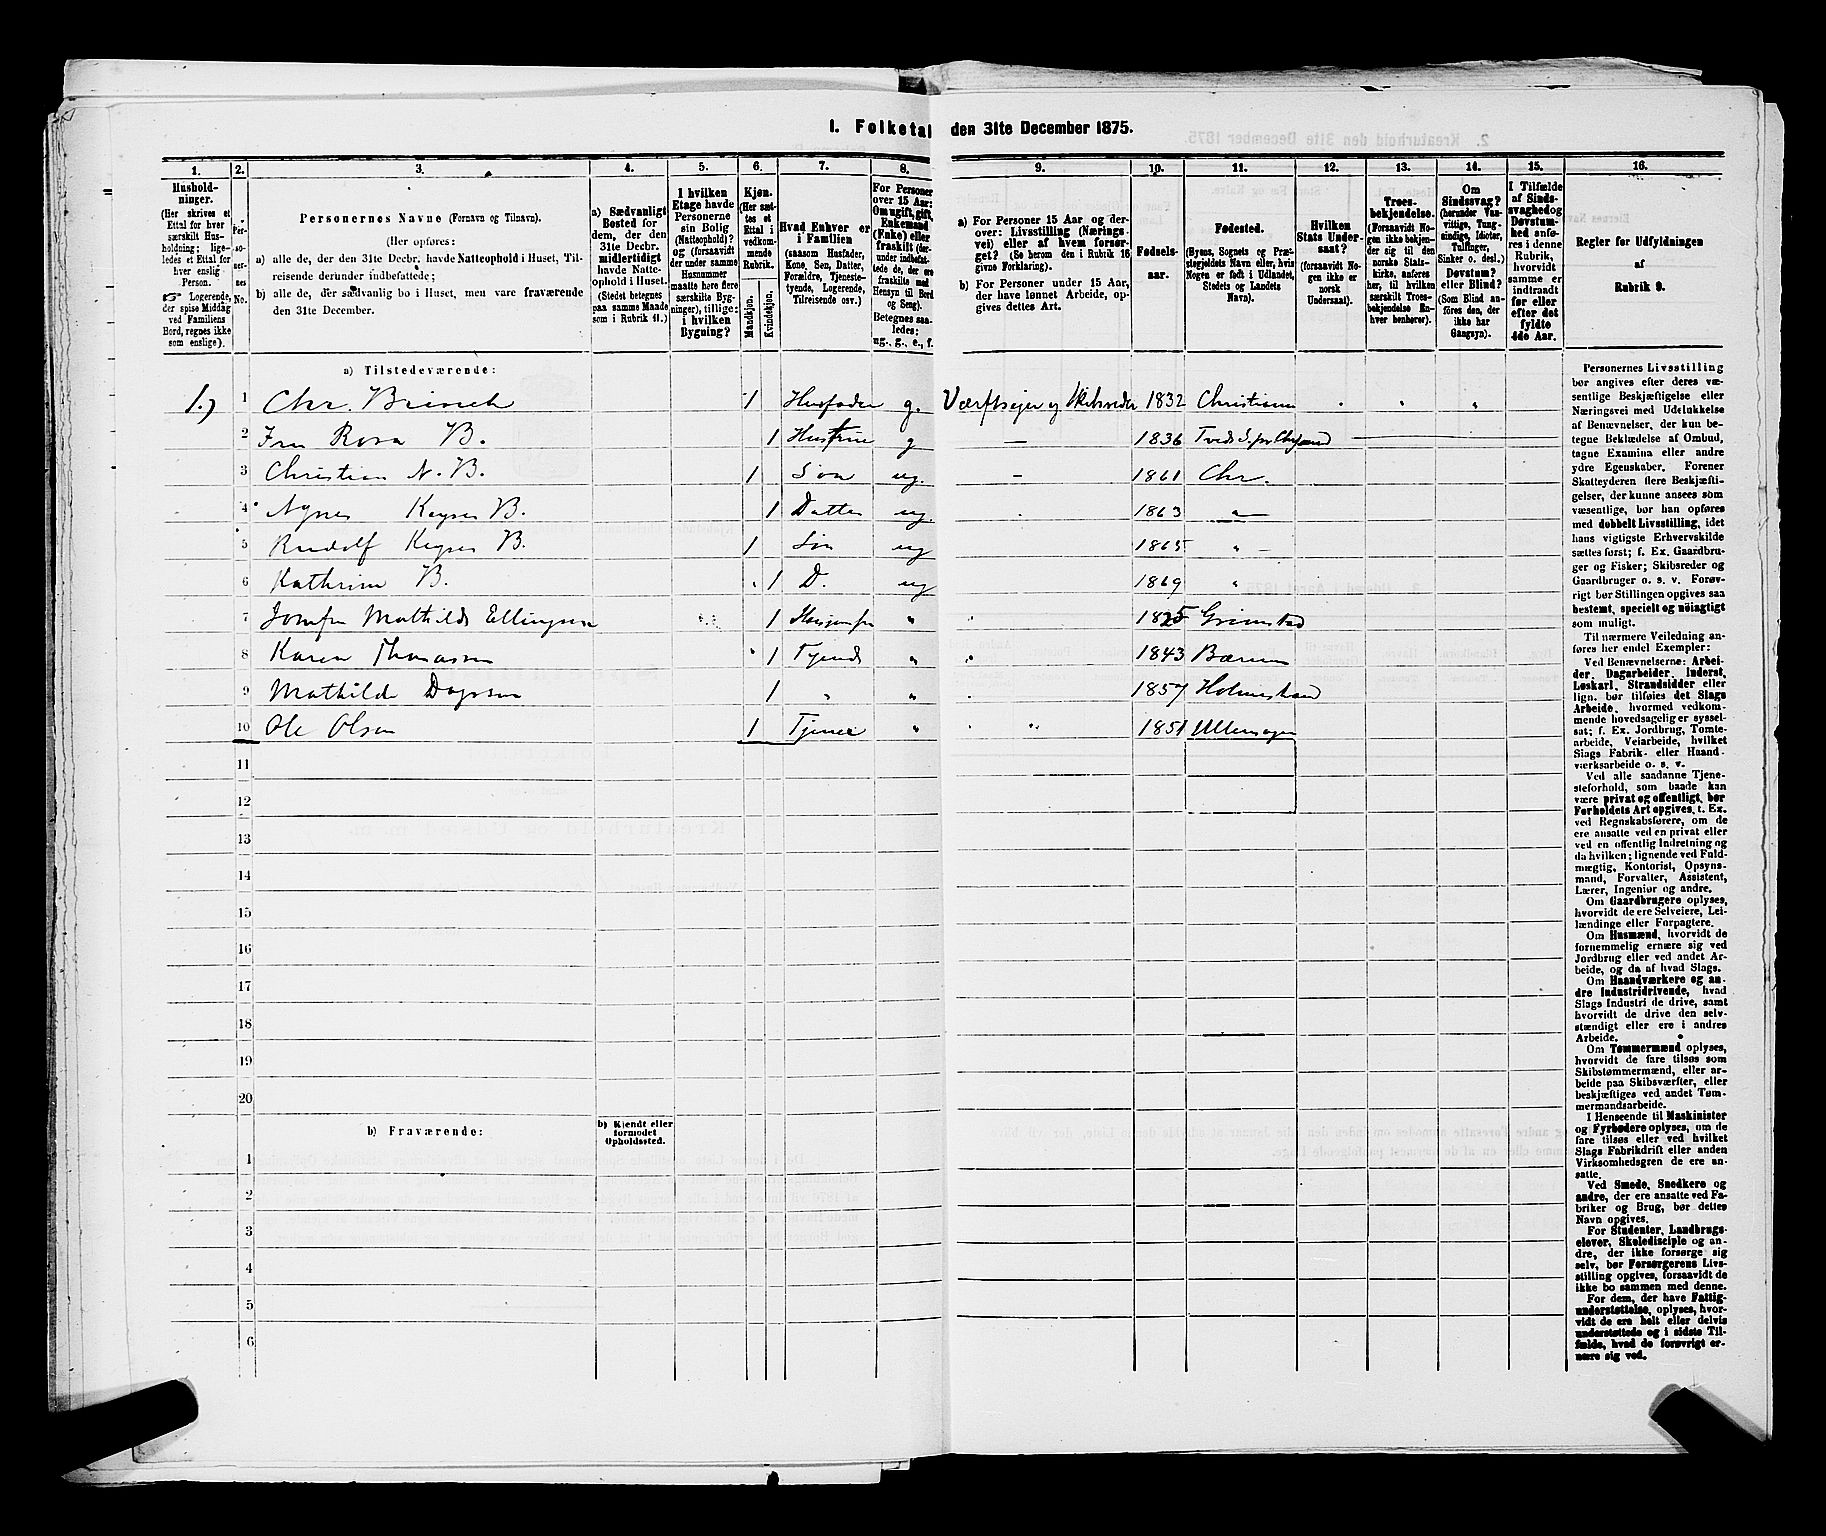 1. Folketal den 31te December 1875.
1.
2.
3.
4.
5.
6.
7.
8.
9.
10.
11.
12.
13.
14.
15.
16.
Husholdninger.
(Her skrives et
Ettal for hver
særskilt Husholdning;
ligeledes et Ettal for
hver enslig
Person.
☞ Logerende,
der spise Middag
ved Familiens
Bord, regnes ikke
som enslige).
Personernes No.
Personernes Navne (Fornavn og Tilnavn).
(Her opføres:
a) alle de, der den 31te Decbr. havde Natteophold i Huset, Tilreisende derunder indbefattede;
b) alle de, der sædvanlig bo i Huset, men vare fraværende
den 31te December.
a) Sædvanligt
Bosted for
dem, der den
31te Decbr.
midlertidigt
havde Natteophold i Huset.
(Stedet betegnes
paa samme Maade
som i Rubrik 11.)
I hvilken
Etage havde
Personerne
sin Bolig
(Natteophold)?
og (forsaavidt
der under samme
Husnummer
maatte høre flere
særskilte Bygninger), tillige:
i hvilken
Bygning?
Kjøn.
(Her sættes et
Ettal i
vedkommende
Rubrik.
Mandkjøn.
Kvindekjøn.
Hvad Enhver er
i Familien
(saasom Husfader,
Kone, Søn, Datter,
Forældre, Tjenestetyende, Logerende,
Tilreisende osv.)
For Personer
over 15 Aar:
Om ugift, gift,
Enkemand
(Enke) eller
fraskilt (herunder indbefattede de, der ere
fraskilte med
Hensyn til Bord
og Seng).
Betegnes saaledes:
ug., g., e., f.
a) For Personer 15 Aar og derover: Livsstilling (Næringsvei) eller af hvem forsørget? (Se herom den i Rubrik 16
givne Forklaring).
b) For Personer under 15 Aar,
der have lønnet Arbeide, opgives dettes Art.
Fødselsaar.
Fødested.
(Byens, Sognets og Præstegjeldets Navn eller, hvis
Nogen er født i Udlandet,
Stedets og Landets
Navn).
Hvilken
Stats Undersaat?
(forsaavidt Nogen ikke er
norsk
Undersaat).
Troesbekjendelse.
(Forsaavidt Nogen ikke bekjender sig til den
norske Statskirke, anføres
her, til hvilken
særskilt Troesbekjendelse Enhver henhører).
Om
Sindssvag?
(herunder Vanvittige, Tungsindige, Idioter,
Tullinger,
Sinker o. desl.)
Døvstum?
eller Blind?
(Som Blind anføres den, der
ikke har
Gangsyn).
I Tilfælde
af Sindssvaghed og
Døvstumhed anføres i denne
Rubrik,
hvorvidt
samme er
indtraadt
før eller
efter det
fyldte
4de Aar.
Regler for Udfyldningen
af
Rubrik 9.
a) Tilstedeværende:
1.) 1 Chr. Brinch 1 Husfader g. Værftseier og Skibsreder 1832 Christiania
2 Fru Rosa B. 1 Hustrue g — 1836 Tveds S. pr Chrsand
3 Christian N. B. 1 Søn ug. — 1861 Chr.
4 Agnes Keyser B. 1 Datter ug. 1863 "—
5 Rudolf Keyser B. 1 Søn ug 1865 "—
6 Kathrine B. 1 D. ug 1869 "
7 Jomfru Mathilde Ellingsen 1 Husjomfru " 1825 Grimstad
8 Karen Thomassen 1 Tyende " 1843 Bærum
9 Mathilde 1 " " 1857 Holmestrand
10 Ole Olsen 1 Tjener " " 1851 Ullensager
11
12
13
14
15
16
17
18
19
20
b) Fraværende:
b) Kjendt eller
formodet
Opholdssted.
1
2
3
4
5
6
Personernes Livsstilling
bør angives efter deres væsentlige Beskjæftigelse eller
Næringsvei med Udelukkelse
af Benævnelser, der kun betegne Beklædelse af Ombud,
tagne Examina eller andre
ydre Egenskaber. Forener
Skatteyderen flere Beskjæftigelser, der kunne ansees som
væsentlige, bør han opføres
med dobbelt Livsstilling, idet
hans vigtigste Erhvervskilde
sættes først; f. Ex. Gaardbruger og Fisker; Skibsreder og
Gaardbruger o. s. v. Forøvrigt bør Stillingen opgives saa
bestemt, specielt og nøiagtigt
som muligt.
Til nærmere Veiledning anføres her endel Exempler:
Ved Benævnelserne: Arbeider, Dagarbeider, Inderst,
Løskarl, Strandsidder eller
lign. bør tilføies det Slags
Arbeide, hvormed vedkommende hovedsagelig er sysselsat; f. Ex. Jordbrug, Tomtearbeide, Veiarbeide, hvilket
Slags Fabrik- eller Haandværksarbeide o. s. v.
Ved alle saadanne Tjenesteforhold, som baade kan
være privat og offentligt, bør
Forholdets Art opgives, t. Ex.
ved Regnskabsførere, om de
ere ansatte ved en privat eller
ved en offentlig Indretning og
da hvilken; lignende ved Fuldmægtig, Kontorist, Opsynsmand, Forvalter, Assistent,
Lærer, Ingeniør og andre.
Om Gaardbrugere oplyses,
hvorvidt de ere Selveiere, Leilændinge eller Forpagtere.
Om Husmænd, hvorvidt de
fornemmelig ernære sig ved
Jordbrug eller ved andet Arbeide, og da af hvad Slags.
Om Haandværkere og andre Industridrivende, hvad
Slags Industri de drive, samt
hvorvidt de drive den selvstændigt eller ere i andres
Arbeide.
Om Tømmermænd oplyses,
hvorvidt de fare tilsøs som
Skibstømmermænd, eller arbeide paa Skibsværfter, eller
beskjæftiges ved andet Tømmermandsarbeide.
I Henseende til Maskinister
og Fyrbødere oplyses, om de
fare tilsøs eller ved hvilket
Slags Fabrikdrift eller anden
Virksomhedsgren de ere ansatte.
Ved Smede, Snedkere og
andre, der ere ansatte ved Fabriker og Brug, bør dettes
Navn opgives.
For Studenter, Landbrugselever, Skoledisciple og andre, der ikke forsørge sig
selv, bør Forsørgerens Livsstilling opgives, forsaavidt de
ikke bo sammen med denne.
For dem, der have Fattigunderstøttelse, oplyses, hvorvidt de ere helt eller delvis
understøttede og i sidste Tilfælde, hvad de forøvrigt ernære sig ved.